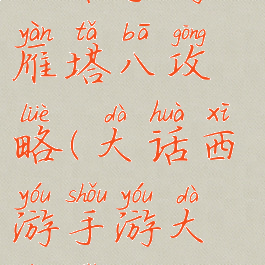 yàn tǎ bā gōng
雁塔八攻
lüè dà huà xī
略(大话西
yóu shǒu yóu dà
游手游大